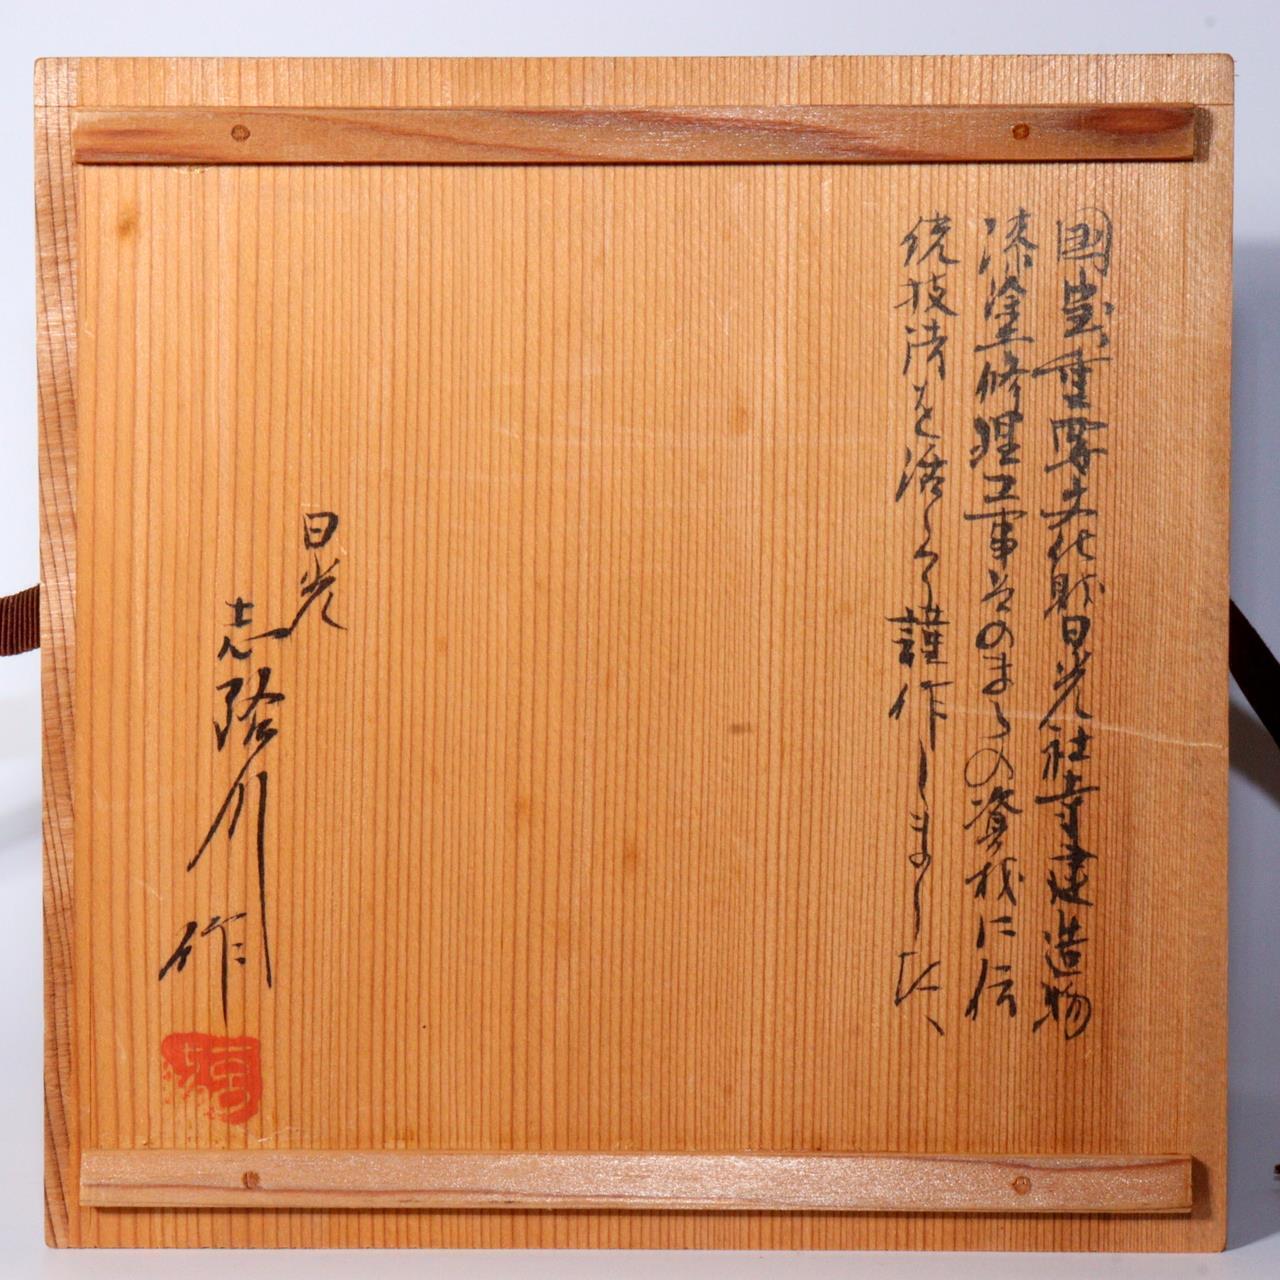 国宝重要文化財日光社寺建造物
漆塗修理工事そのままの資材に伝
統技法を活かし謹作しました、
日光
志路川作